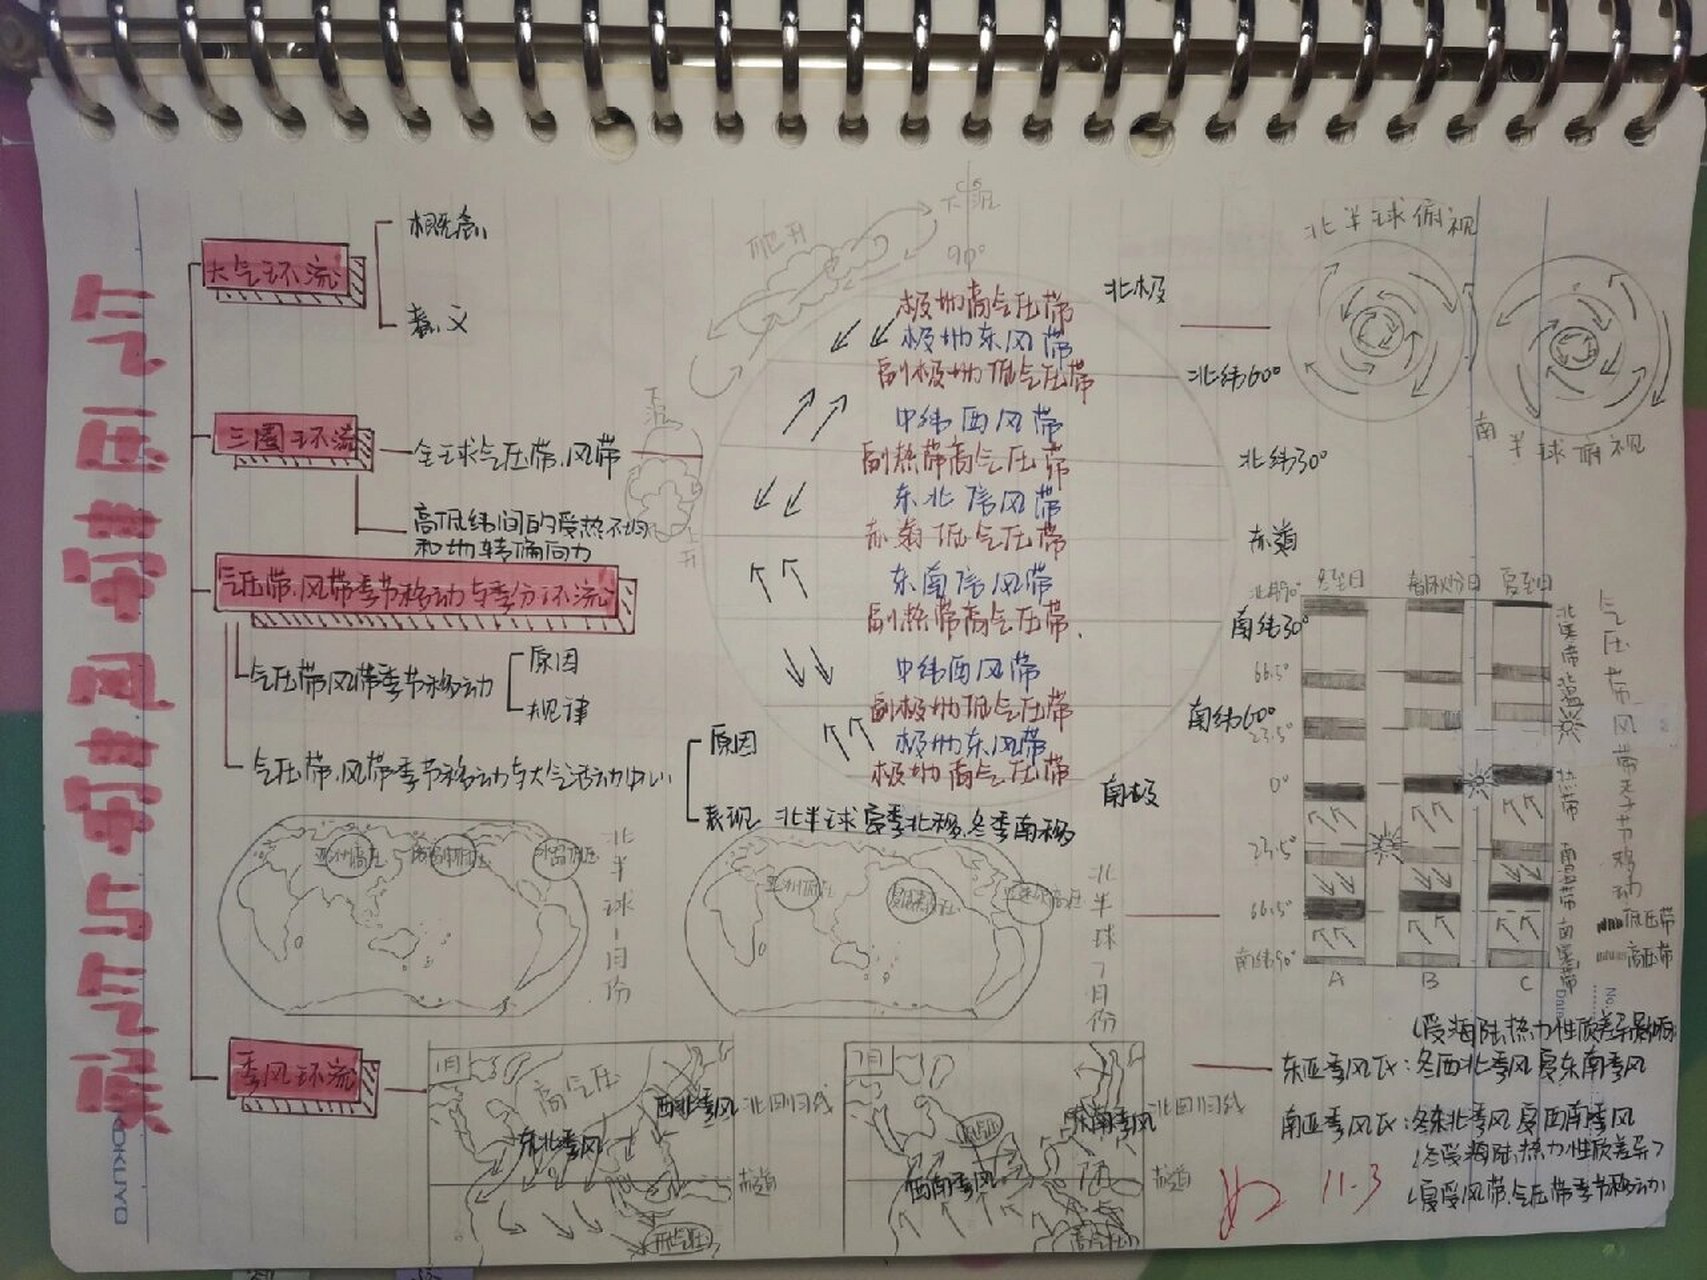 气压带和风带
大气环流
概念
意义
三圈环流
全球气压带、风带
高低纬间的受热不均
和地转偏向力
气压带、风带季节移动与季分环流
气压带风带季节移动
原因
规律
气压带、风带季节移动与大气活动中心
原因
表现 北半球夏季北移,冬季南移
下沉
爬升
90°
极地高气压带
极地东风带
副极地低气压带
中纬西风带
副热带高气压带
东北信风带
赤道低气压带
东南信风带
副热带高气压带
中纬西风带
副极地低气压带
极地东风带
极地高气压带
北极
北纬60°
北纬30°
赤道
南纬30°
南纬60°
南极
下沉
上升
北半球俯视
南半球俯视
冬至日
春秋分日
夏至日
北纬90°
66.5°
23.5°
0°
23.5°
66.5°
南纬90°
A
B
C
北寒带
北温带
热带
南温带
南寒带
气压带风带季节移动
低压带
高压带
亚洲高压
冰岛低压
北半球一月份
亚洲低压
夏威夷高压
北半球7月份
季风环流
1月
高气压
西北季风
北回归线
东北季风
赤道
低气压
7月
东南季风
北回归线
西南季风
赤道
高气压
受海陆热力性质差异影响
东亚季风区:冬西北季风 夏东南季风
南亚季风区:冬东北季风 夏西南季风
冬受海陆热力性质差异
夏受风带、气压带季节移动
11.3
KOKUYO
No.
Date